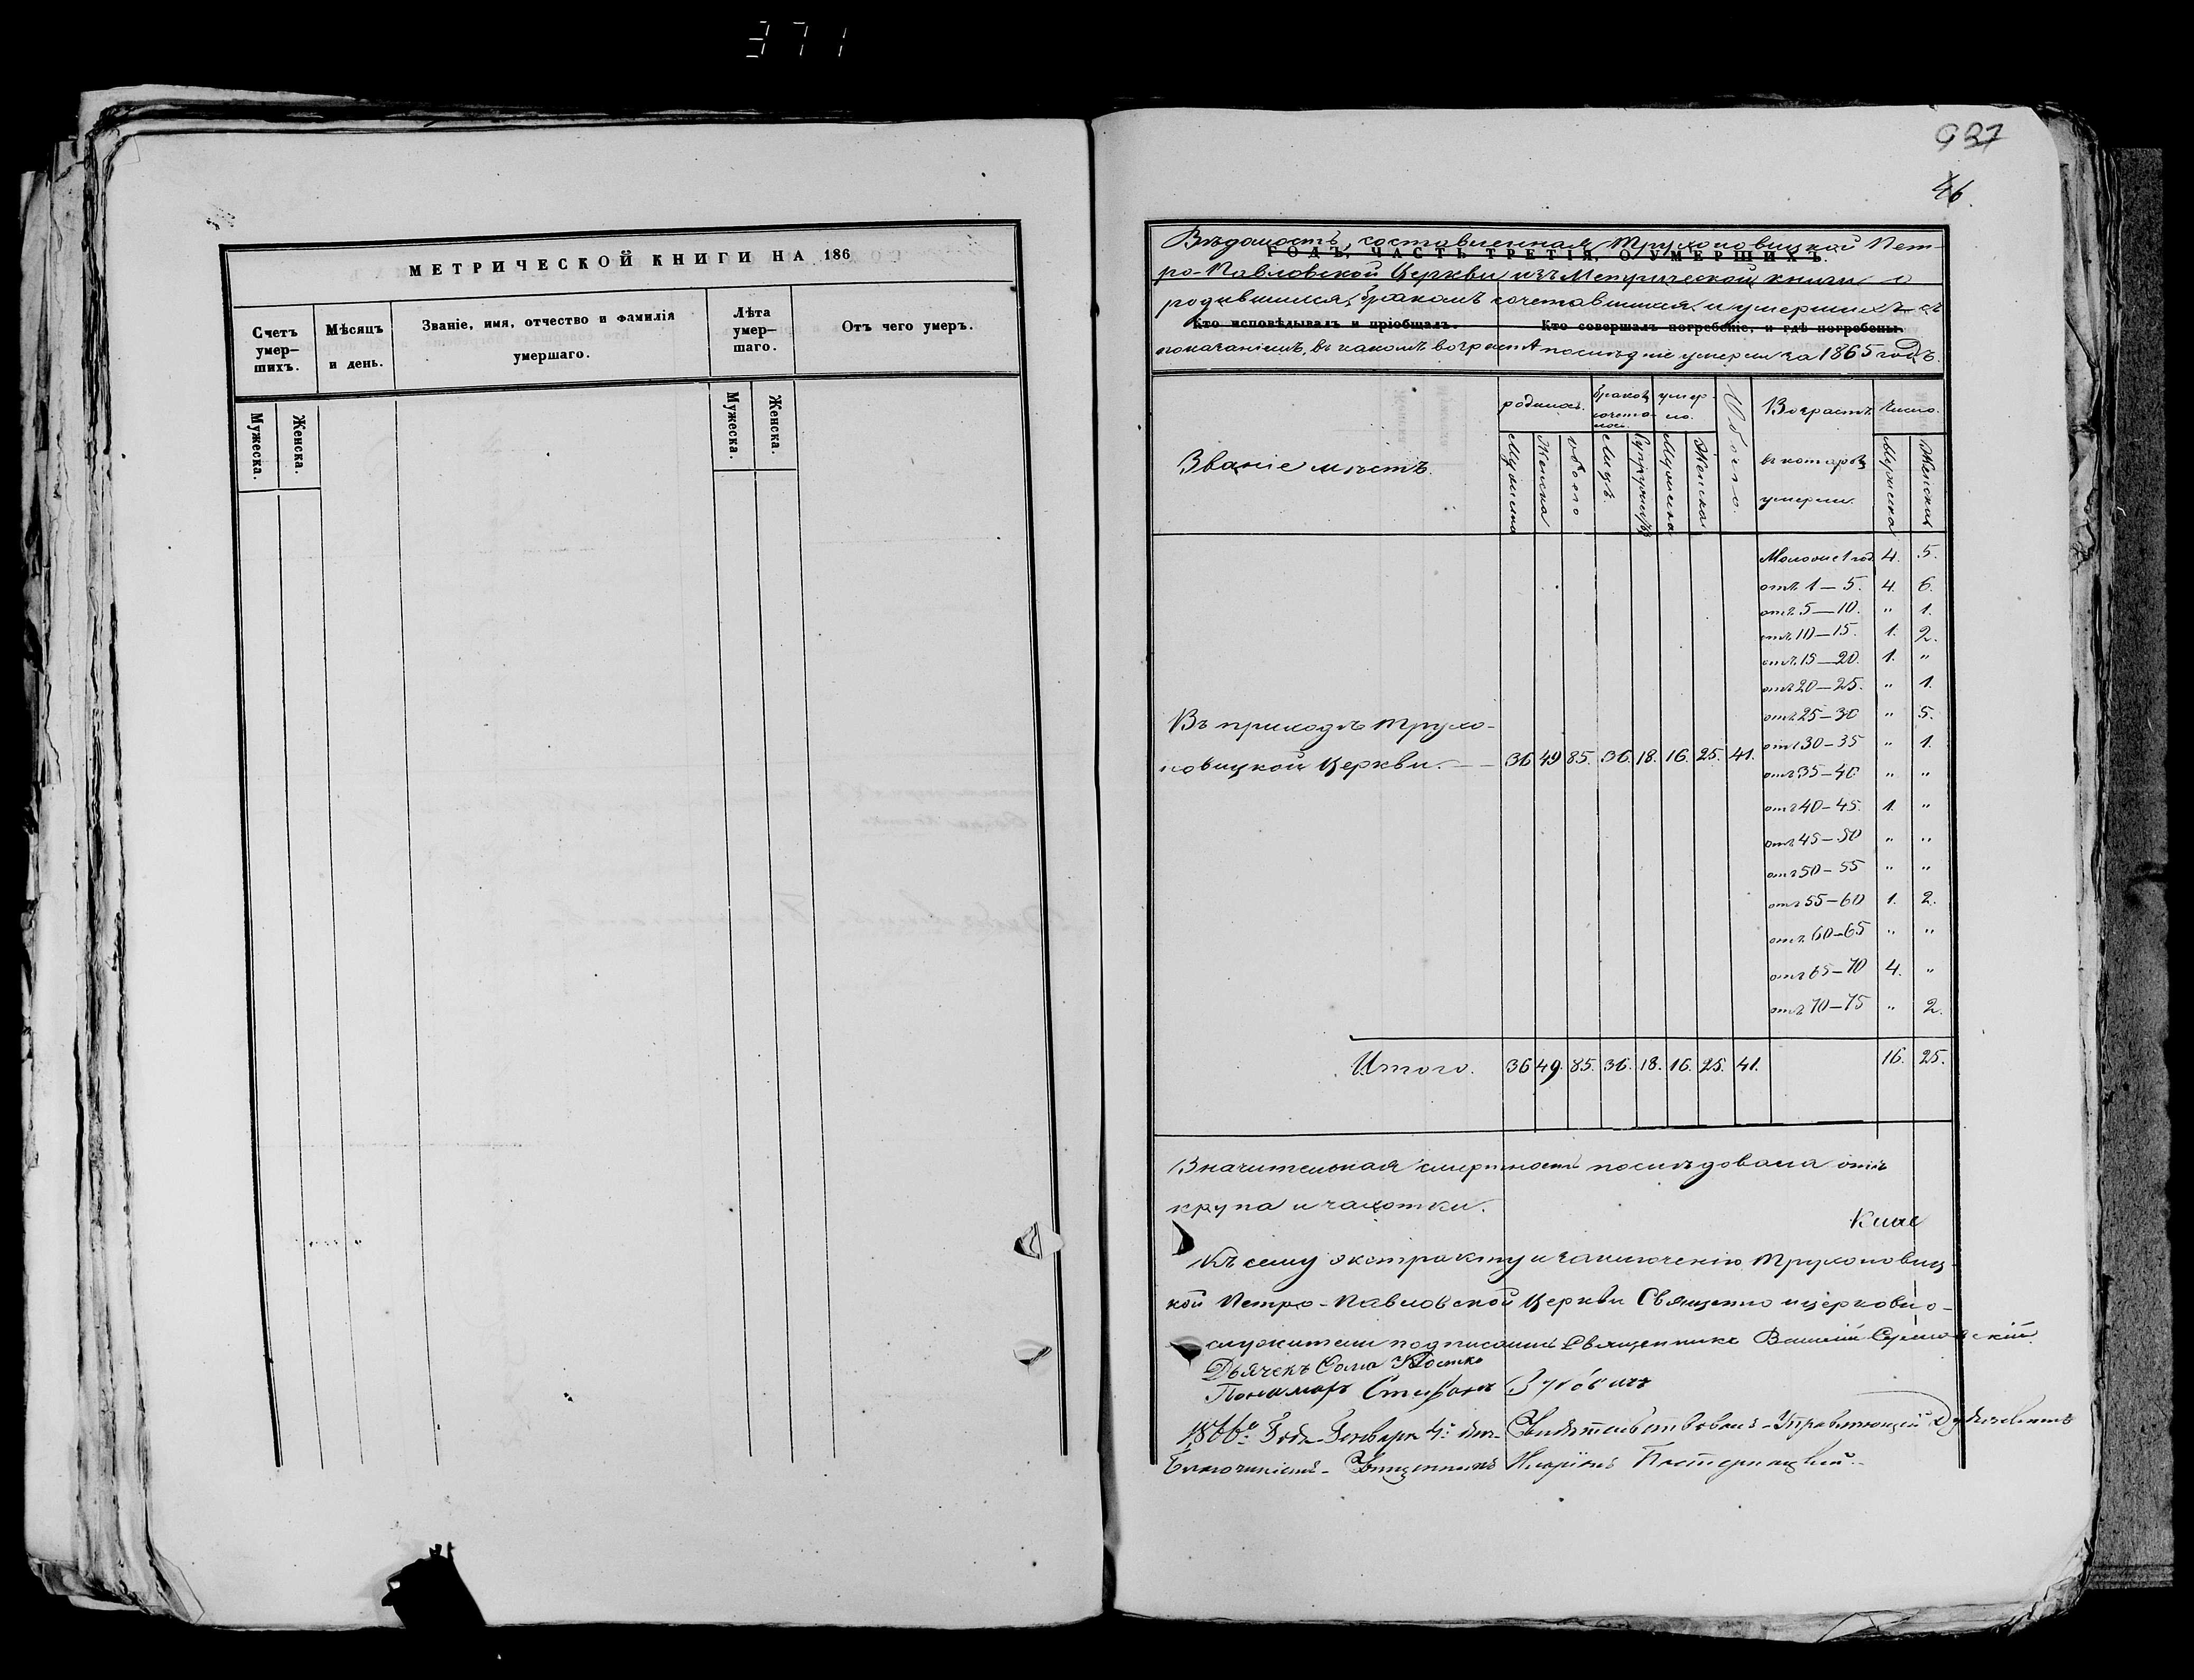 371
МЕТРИЧЕСКОЙ КНИГИ НА 186
Счетъ умер-шихъ.
Мѣсяцъ и день.
Званіе, имя, отчество и фамилія умершаго.
Лѣта умер-шаго.
Отъ чего умеръ.
Мужеска. Женска. Мужеска. Женска.
937
46.
Вѣдомость, составленная Трухоновицкой Пет-
ГОДЪ, ЧАСТЬ ТРЕТІЯ, О УМЕРШИХЪ.
ро-Павловской Церкви изъ Метрической книги о
родившихся, бракомъ сочетавшихся и умершихъ съ
Кто исповѣдывалъ и пріобщалъ. Кто совершалъ погребеніе, и гдѣ погребены.
показаніемъ, въ какомъ возрастѣ послѣдніе умерли за 1865 годъ.
Званіе мѣстъ.
родилось.
бракомъ сочета-лось.
умер-ло.
Возрастъ въ которомъ умерли.
Число.
Мужеска Женска обоего Лицъ. Супружествъ Мужеска Женска Обоего. Мужеска Женска
Моложе 1 год. 4. 5.
отъ 1—5. 4. 6.
отъ 5—10. " 1.
отъ 10—15. 1. 2.
отъ 15—20. 1. "
отъ 20—25. " 1.
отъ 25—30 " 5.
отъ 30—35 " 1.
отъ 35—40 " "
отъ 40—45. 1. "
отъ 45—50 " "
отъ 50—55 " "
отъ 55—60 1. 2.
отъ 60—65 " "
отъ 65—70 4. "
отъ 70—75 " 2.
Въ приходѣ Трухо-
новицкой Церкви. — — 36 49 85. 36. 18. 16. 25. 41.
Итого. 36 49. 85. 36. 18. 16. 25. 41. 16. 25.
Значительная смертность послѣдовала отъ
крупа и чахотки.
Къ сему экстракту и заключенію Трухоновиц-
кой Петро-Павловской Церкви Священно и церковно-
служители подписались Священникъ
Дьячекъ
Пономарь Стефанъ
1866го Года Генваря 4: дня Свидѣтельствовалъ Управляющій
Благочиніемъ Священникъ Иларіонъ